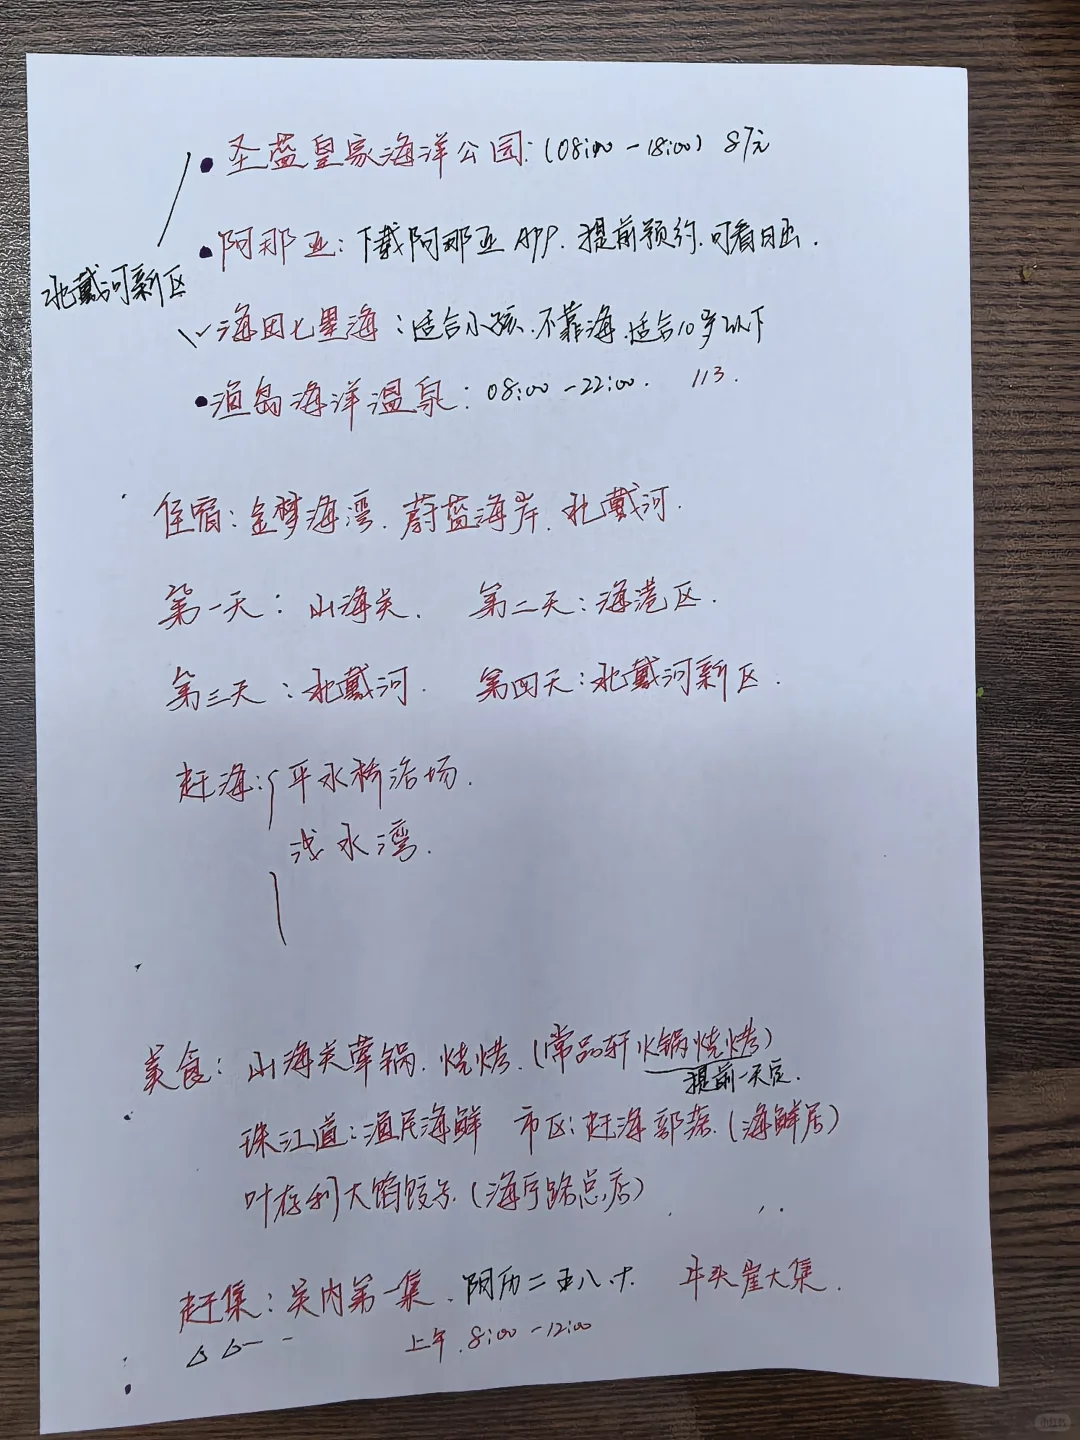 圣蓝皇家海洋公园:(08:00-18:00) 87元
阿那亚:下载阿那亚APP.提前预约.可看日出.
北戴河新区
海田七里海:适合小孩.不靠海.适合10岁以下
渔岛海洋温泉:08:00-22:00. 113.
住宿:金梦海湾.蔚蓝海岸.北戴河.
第一天:山海关. 第二天:海港区.
第三天:北戴河. 第四天:北戴河新区.
赶海:平水桥浴场.
浅水湾.
美食:山海关荤锅.烧烤.(常品轩火锅烧烤)
提前一天定.
珠江道:渔民海鲜 市区:赶海部落.(海鲜店)
叶存利大馅饺子.(海宁路总店)
赶集:关内第一集.阴历二五八.十. 牛头崖大集.
上午.8:00-12:00
小红书